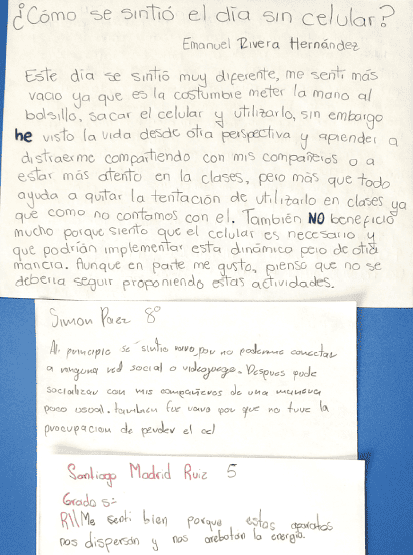 ¿Cómo se sintió el día sin celular?
Emanuel Rivera Hernández
Este día se sintió muy diferente, me sentí más
vacio ya que es la costumbre meter la mano al
bolsillo, sacar el celular y utilizarlo, sin embargo
he visto la vida desde otra perspectiva y aprender a
distraerme compartiendo con mis compañeros o a
estar más atento en la clases, pero más que todo
ayuda a quitar la tentación de utilizarlo en clases ya
que como no contamos con el. También NO benefició
mucho porque siento que el celular es necesario y
que podrían implementar esta dinámica pero de otra
manera. Aunque en parte me gusto, pienso que no se
debería seguir proponiendo estas actividades.
Simon Paez 8°
Al principio se sintio raro por no podernos conectar
a ninguna red social o videojuego. Despues pude
socializar con mis compañeros de una manera
poco usual. tambien fue raro por que no tuve la
preocupacion de perder el cel
Santiago Madrid Ruiz 5
Grado 5=
R// Me senti bien porque estos aparatos
nos dispersan y nos arebatan la energia.